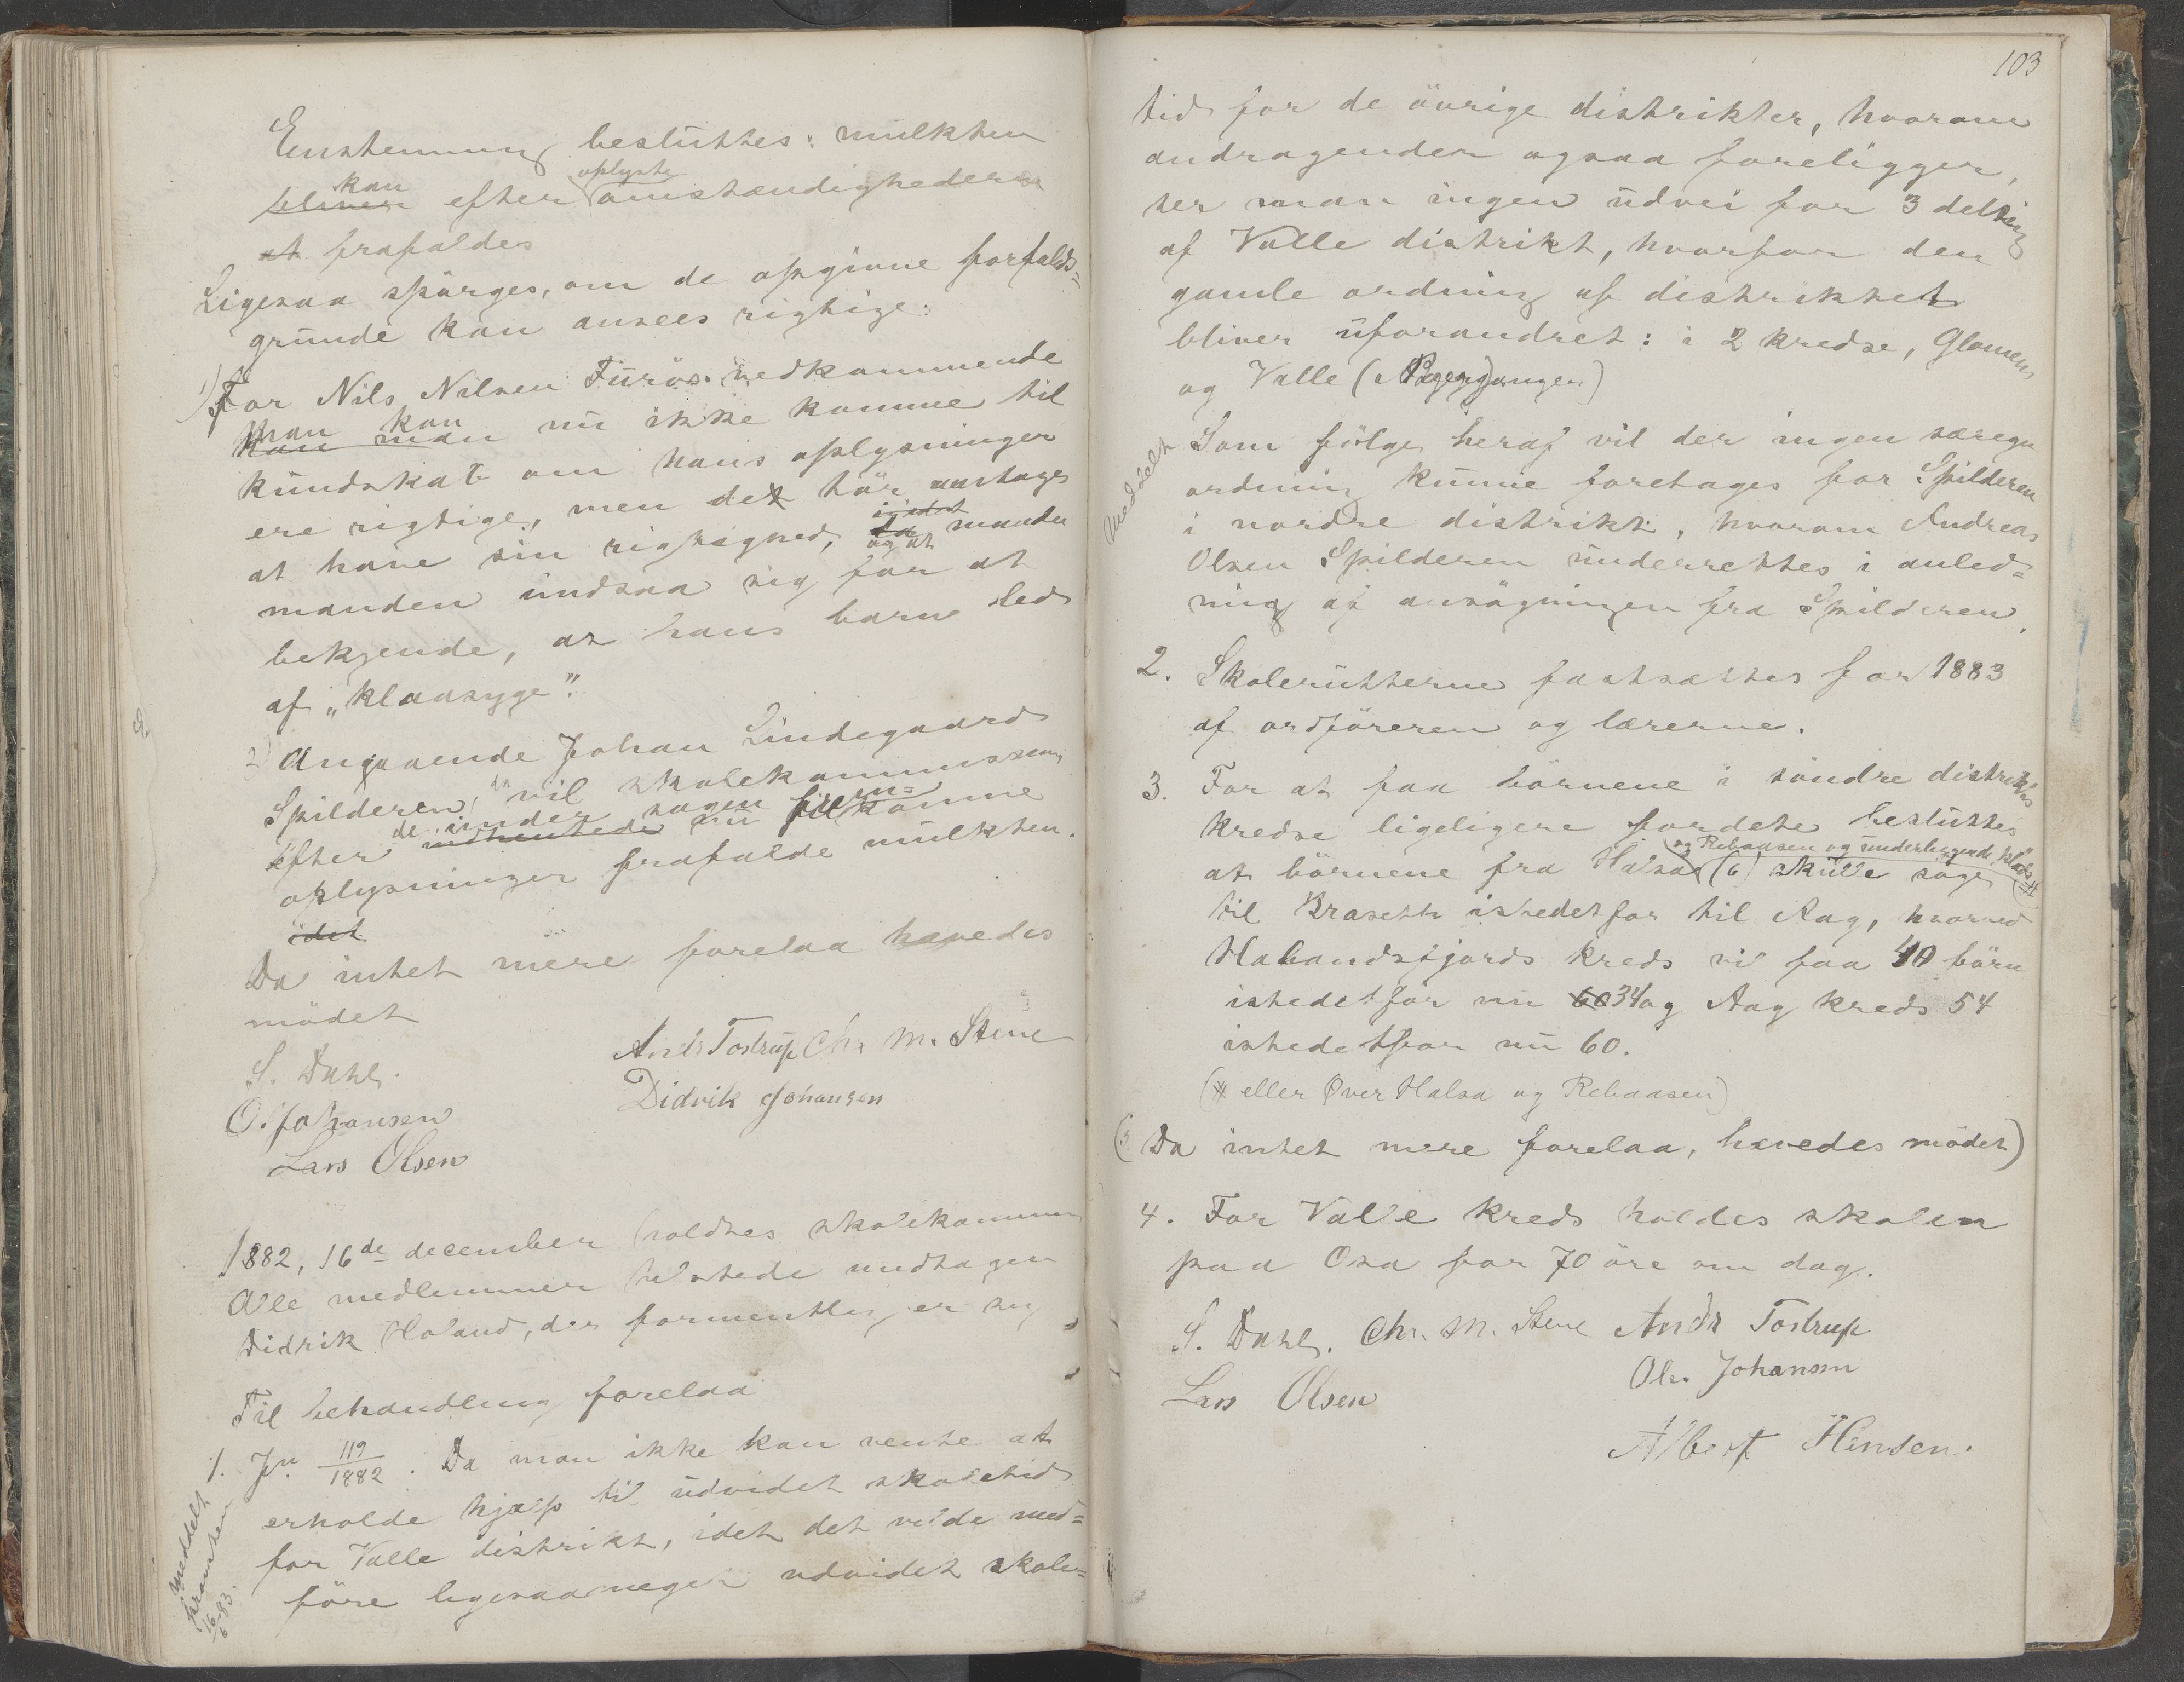 Enstemmig besluttes: mulkten
kan oplyste
bliver efter omstændighederne
at frafaldes
Ligesaa spörges, om de opgivne forfalds=
grunde kan ansees rigtige:
1) For Nils Nilsen Furös vedkommende
man kan
kan man nu ikke komme til
kundskab om hans oplysninger
ere rigtige, men det tör antages
at have sin rigtighed, da manden
og at
manden undsaa sig for at
bekjende, at hans barn led
af „klaasyge".
2) Angaaende Johan Lindegaard
Spilderen, vil skolekommissionen
efter de under sagen nu fremkomne
indhentede
oplysninger frafalde mulkten.
idet
Da intet mere forelaa hævedes
mödet
S. Dahl. Andr Tostrup Chr. M. Stene
O. Johansen Didrik Johansen
Lars Olsen
1882, 16de december holdtes skolekommis
Alle medlemmer tilstede undtagen
Didrik Holand, der formentlig er syg
Til behandling forelaa
1. Jn. 119/1882. Da man ikke kan vente at
erholde hjælp til udvidet skoletid
for Valle distrikt, idet det vilde med=
före ligesaameget udvidet skole=
meddelt
16/6 83.
103
tid for de övrige distrikter, hvorom
andragender ogsaa foreligger,
ser man ingen udvei for 3 deling
af Valle distrikt, hvorfor den
gamle ordning af distriktet
bliver uforandret: i 2 kredse, Glomens
og Valle
Meddelt
Som fölge heraf vil der ingen særegen
ordning kunne foretages for Spilderen
i nordre distrikt, hvorom Andreas
Olsen Spilderen underrettes i anled=
ning af ansögningen fra Spilderen.
2. Skolerutterne fastsættes for 1883
af ordföreren og lærerne.
3. For at faa börnene i söndre distrikts
kredse ligeligere fordelte besluttes
og Rebaasen og underliggende pladse
at börnene fra Halsa (6) skulle söge #
til Brasett istedetfor til Aag, hvorved
Halandsfjords kreds vil faa 40 börn
istedetfor nu 60 34 og Aag kreds 54
istedetfor nu 60.
(# eller Över Halsa og Rebaasen)
(3 Da intet mere forelaa, hævedes mödet)
4. For Valle kreds holdes skolen
paa Osa for 70 öre om dag.
S. Dahl. Chr. M. Stene Andr Tostrup
Lars Olsen Ole Johansen
Albert Hinsen.